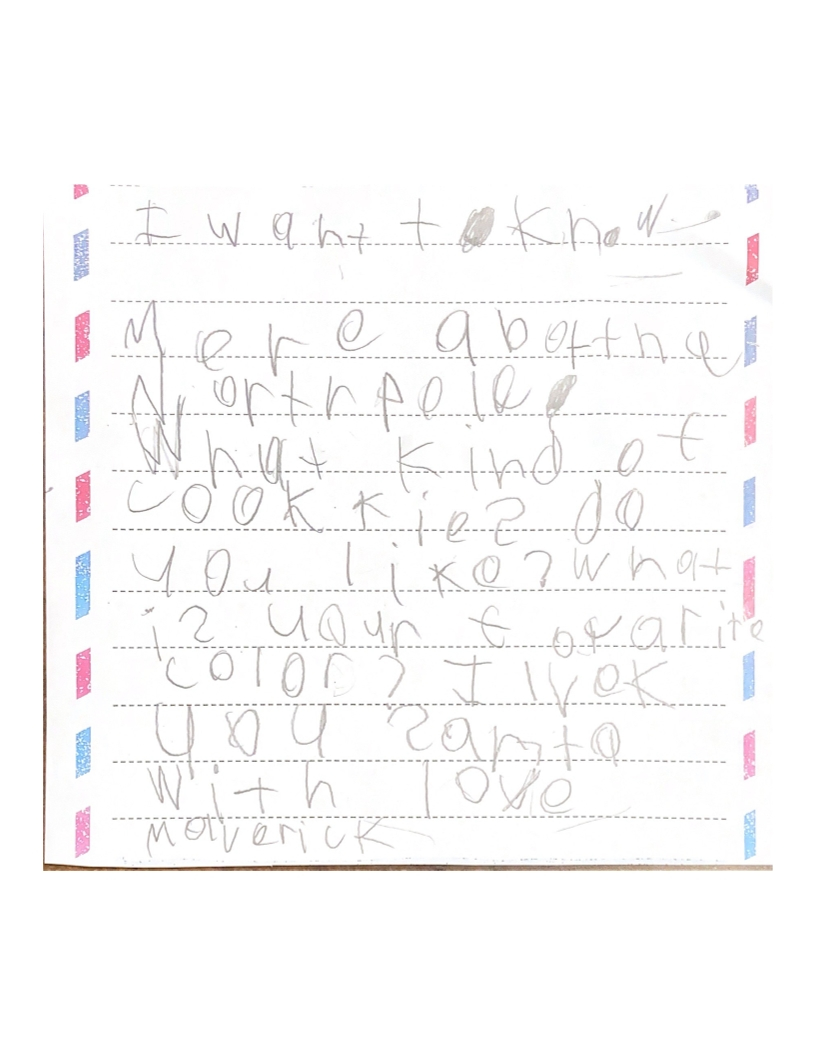 I want to know
Mere abotthe
Northpole
What kind of
cookkies do
you like? what
is your fovarite
color? I lvek
you Santa
with love
Maverick